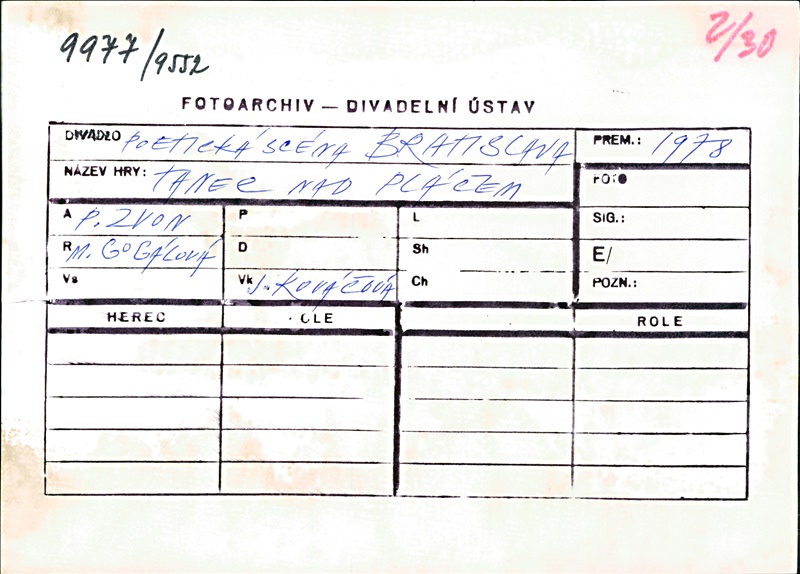 9977/9552
2/30
FOTOARCHIV — DIVADELNÍ ÚSTAV
DIVADLO POETICKÁ SCÉNA BRATISLAVA PREM.: 1978
NÁZEV HRY: TANEC NAD PLÁČEM FOTO
A P. ZVON P L SIG.:
R M. GOGÁLOVÁ D Sh E/
Vs Vk J. KOVÁČOVÁ Ch POZN.:
HEREC OLE ROLE